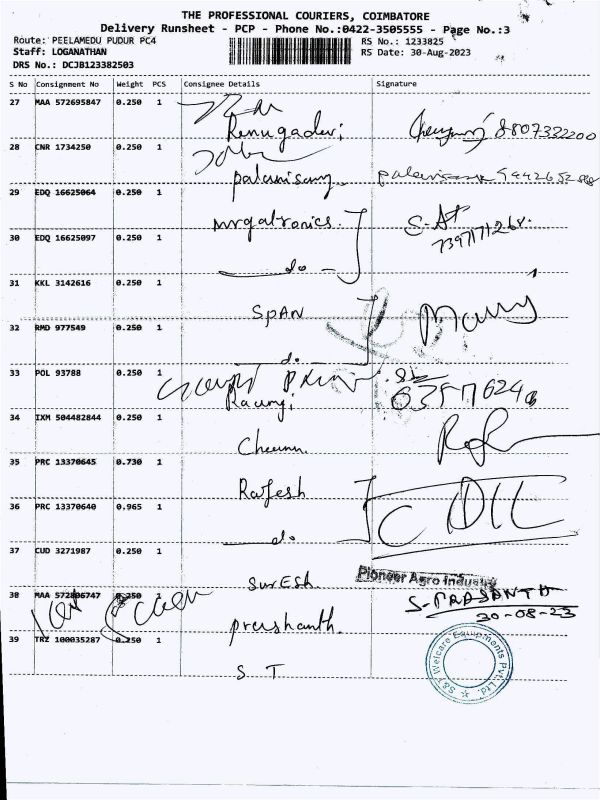 THE PROFESSIONAL COURIERS, COIMBATORE
Delivery Runsheet - PCP - Phone No.:0422-3505555 - Page No.:3
Route: PEELAMEDU PUDUR PC4
RS No.: 1233825
Staff: LOGANATHAN
RS Date: 30-Aug-2023
DRS No.: DCJB123382503
S No Consignment No Weight PCS Consignee Details Signature
27 MAA 572695847 0.250 1
Renugadevi 8807332200
28 CNR 1734250 0.250 1
palanisamy
29 EDQ 16625064 0.250 1
30 EDQ 16625097 0.250 1
do
31 KKL 3142616 0.250 1
SPAN
32 RMD 977549 0.250 1
do
33 POL 93788 0.250 1
34 IXM 504482844 0.250 1
35 PRC 13370645 0.730 1
Rajesh
36 PRC 13370640 0.965 1
do
37 CUD 3271987 0.250 1
SurESh
Pioneer Agro Industry
38 MAA 572806747 0.250 1
S-PRASANTH
prashanth
30-08-23
39 TRZ 100035287 0.250 1
S T
S&T Welcare Equipments Pvt. Ltd.